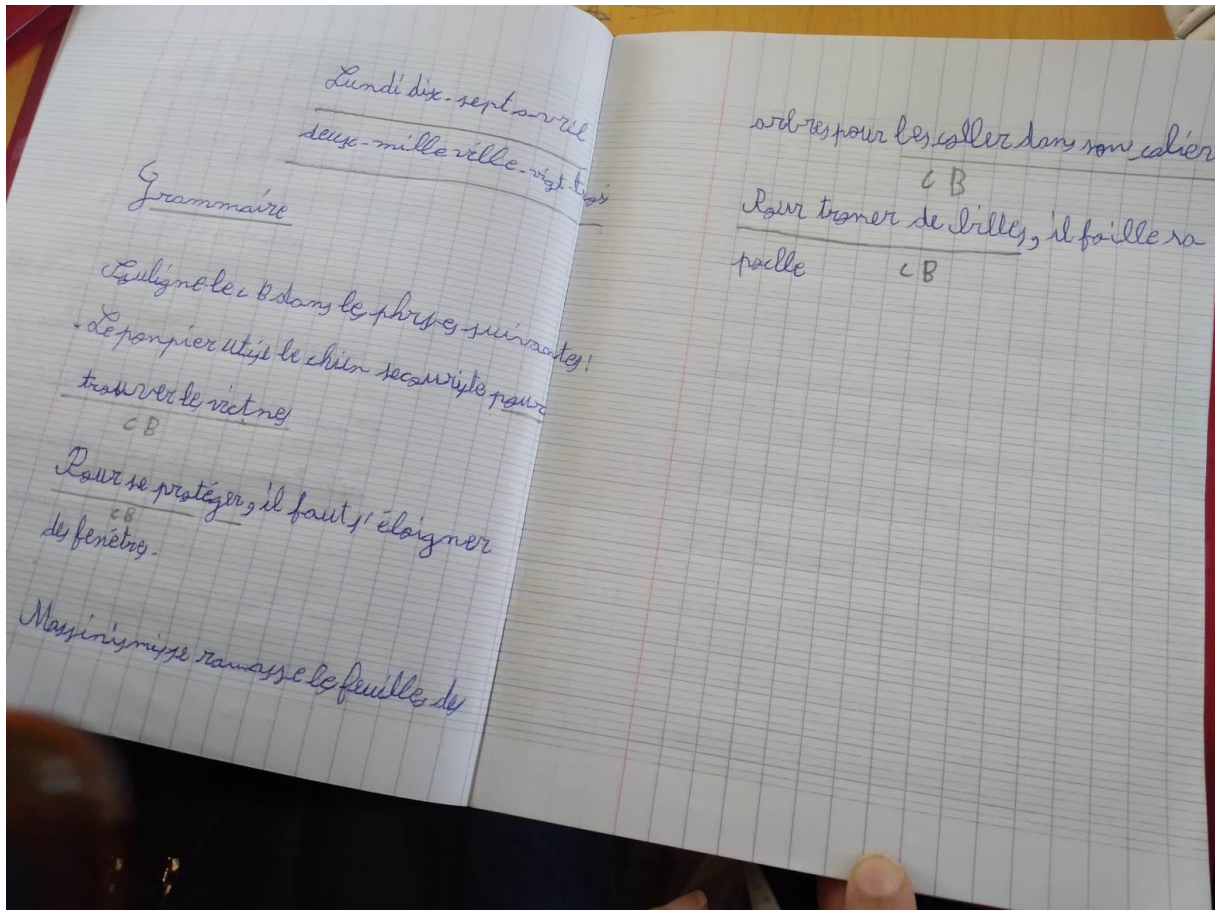 Lundi dix-sept avril
deux-mille ville-vigt trois
Grammaire
Souligne le c B dans les phrses suivantes!
- Le ponpier utise le chien secouriste pour
trouver les victnes
CB
Pour se protéger, il faut s'éloigner
CB
des fenêtres.
Massinissmisse ramasse les feuilles des
arbres pour les coller dans son cahier
CB
Pour troner de billes, il faille sa
paelle
CB